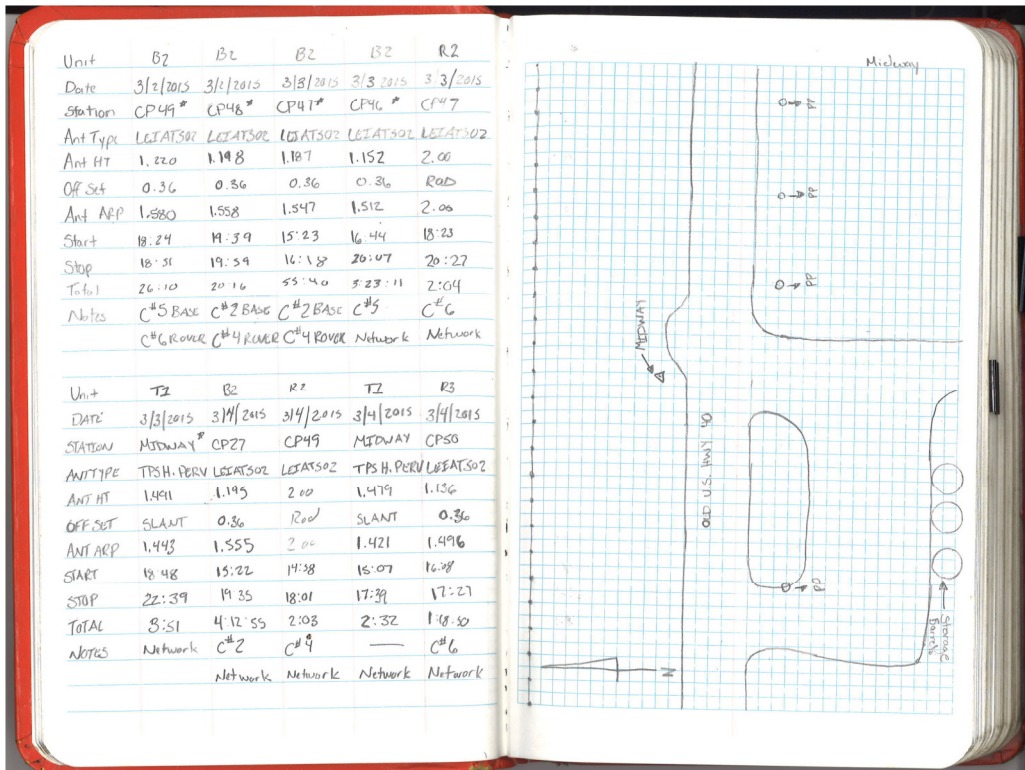 Unit B2 B2 B2 B2 R2
Date 3/2/2015 3/2/2015 3/3/2015 3/3 2015 3/3/2015
Station CP49* CP48* CP47* CP46* CP47
Ant Type LEIATS02 LEIATS02 LEIATS02 LEIATS02 LEIATS02
Ant HT 1.220 1.198 1.187 1.152 2.00
Off Set 0.36 0.36 0.36 0.36 ROD
Ant ARP 1.580 1.558 1.547 1.512 2.00
Start 18:24 19:39 15:23 16:44 18:23
Stop 18:51 19:59 16:18 20:07 20:27
Total 26:10 20 16 55:40 3:23:11 2:04
Notes C#5 BASE C#2 BASE C#2 BASE C#5 C#6
C#6 ROVER C#4 ROVER C#4 ROVER Network Network
Unit T1 B2 R2 T1 R3
DATE 3/3/2015 3/4/2015 3/4/2015 3/4/2015 3/4/2015
STATION MIDWAY* CP27 CP49 MIDWAY CP50
ANT TYPE TPS H. PERV LEIATS02 LEIATS02 TPS H. PERV LEIATS02
ANT HT 1.491 1.195 2 00 1.479 1.136
OFF SET SLANT 0.36 Rod SLANT 0.36
ANT ARP 1.443 1.555 2 00 1.421 1.496
START 18:48 15:22 14:58 15:07 16:08
STOP 22:39 19 35 18:01 17:39 17:27
TOTAL 3:51 4:12:55 2:03 2:32 1:18:50
NOTES Network C#2 C#4 — C#6
Network Network Network Network
Midway
PP
PP
PP
MIDWAY
OLD U.S. HWY 40
PP
Storage
Barrels
N